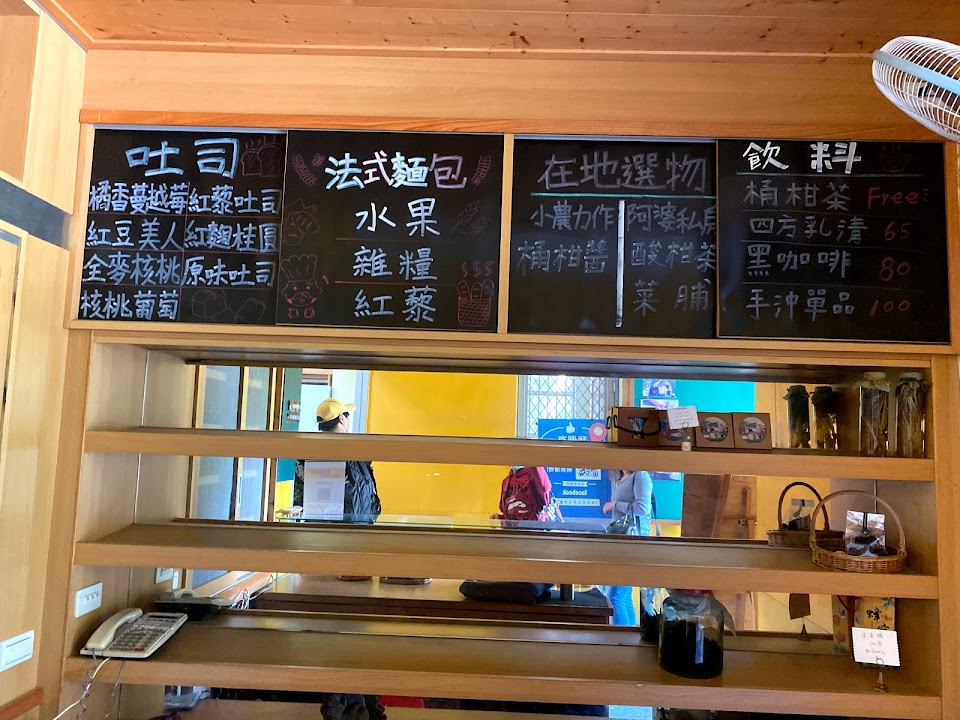 吐司
橘香蔓越莓 紅藜吐司
紅豆美人 紅麴桂圓
全麥核桃 原味吐司
核桃葡萄
法式麵包
水果
雜糧
紅藜
在地選物
小農力作 阿婆私房
桶柑醬 酸柑茶
菜脯
飲料
桶柑茶 Free
四方乳清 65
黑咖啡 80
手沖單品 100
facebook